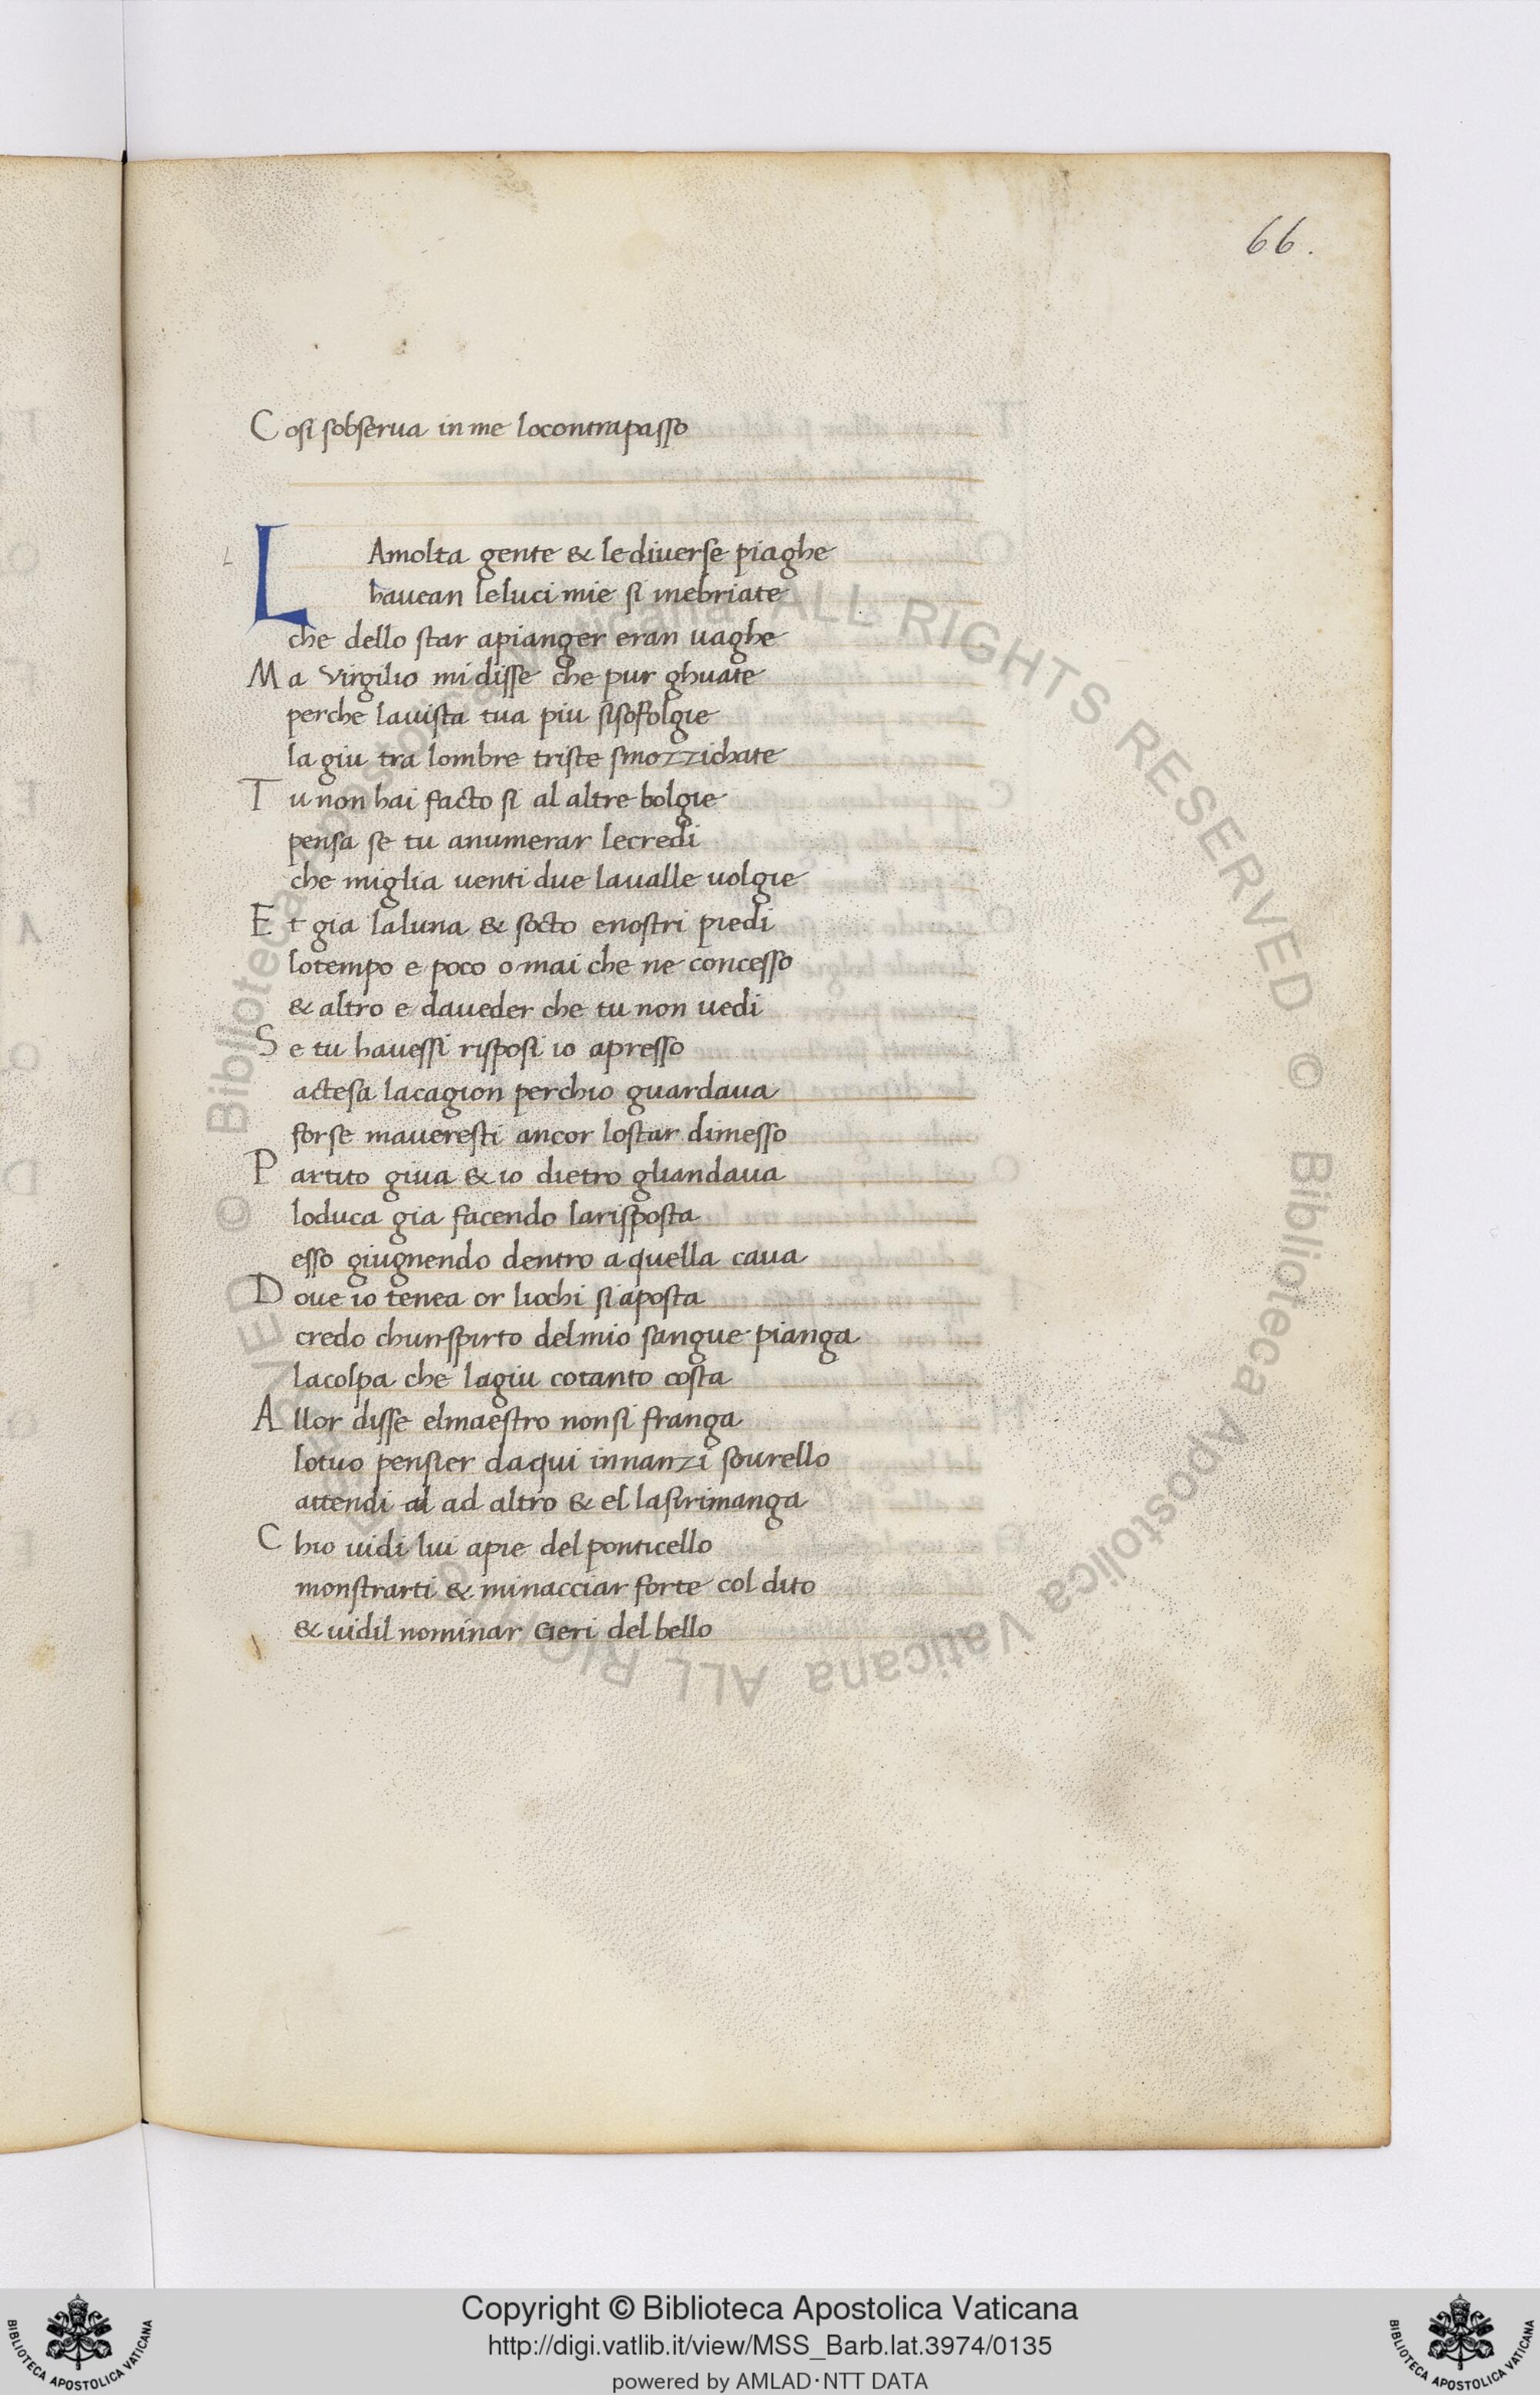 66.
Cosi sobserua in me locontrapasso
L
LAmolta gente & lediuerse piaghe
hauean leluci mie si inebriate
che dello star apianger eran uaghe
Ma Virgilio mi disse che pur ghuate
perche lauista tua piu sisofolgie
la giu tra lombre triste smozzichate
Tu non hai facto si al altre bolgie
pensa se tu anumerar lecredi
che miglia uenti due laualle uolgie
Et gia laluna & socto enostri piedi
lotempo e poco o mai che ne concesso
& altro e daueder che tu non uedi
Se tu hauessi risposi io apresso
actesa lacagion perchio guardaua
forse maueresti ancor lostar dimesso
Partito giua & io dietro gliandaua
loduca gia facendo larisposta
esso giugnendo dentro a quella caua
Doue io tenea or liochi si aposta
credo chunspirto delmio sangue pianga
lacolpa che lagiu cotanto costa
Allor disse elmaestro nonsi franga
lotuo pensier daqui innanzi sourello
attendi al ad altro & el lasirimanga
Chio uidi lui apie del ponticello
monstrarti & minacciar forte col dito
& uidil nominar Geri del bello
© Biblioteca Apostolica Vaticana ALL RIGHTS RESERVED © Biblioteca Apostolica Vaticana ALL RIGHTS RESERVED
Copyright © Biblioteca Apostolica Vaticana
http://digi.vatlib.it/view/MSS_Barb.lat.3974/0135
powered by AMLAD·NTT DATA
BIBLIOTECA APOSTOLICA VATICANA
BIBLIOTECA APOSTOLICA VATICANA